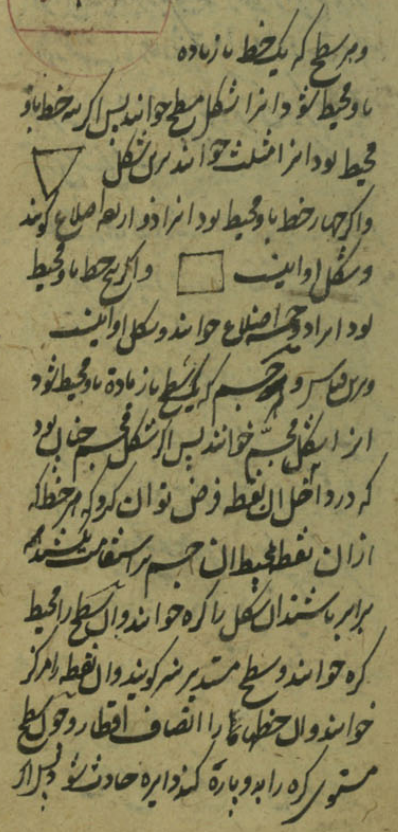 و هر سطح که یک خط یا زیاده
باو محیط شود انرا شکل مسطح خوانند پس اگر سه خط باو
محیط بود انرا مثلث خوانند برین شکل
و اگر چهار خط باو محیط بود انرا ذو اربعه اضلاع کویند
و شکل او اینست و اگر پنج خط باو محیط
بود انرا ذو خمسه اضلاع خوانند و شکل او اینست
و برین قیاس و هر جسم که یک سطح یا زیاده باو محیط شود
انرا شکل مجسّم خوانند پس اگر شکل مجسم چنان بود
که در داخل ان نقطه فرض توان کرد که هر خط که
از ان نقطه بمحیط ان جسم بر استقامت کشند همه
برابر باشند ان شکل را کره خوانند و ان سطح را محیط
کره خوانند و سطح مستدیر نیز کویند و ان نقطه را مرکز
خوانند و ان خطها را انصاف اقطار و چون سطح
مستوی کره را بدو پاره کند دایره حادث شود پس اگر